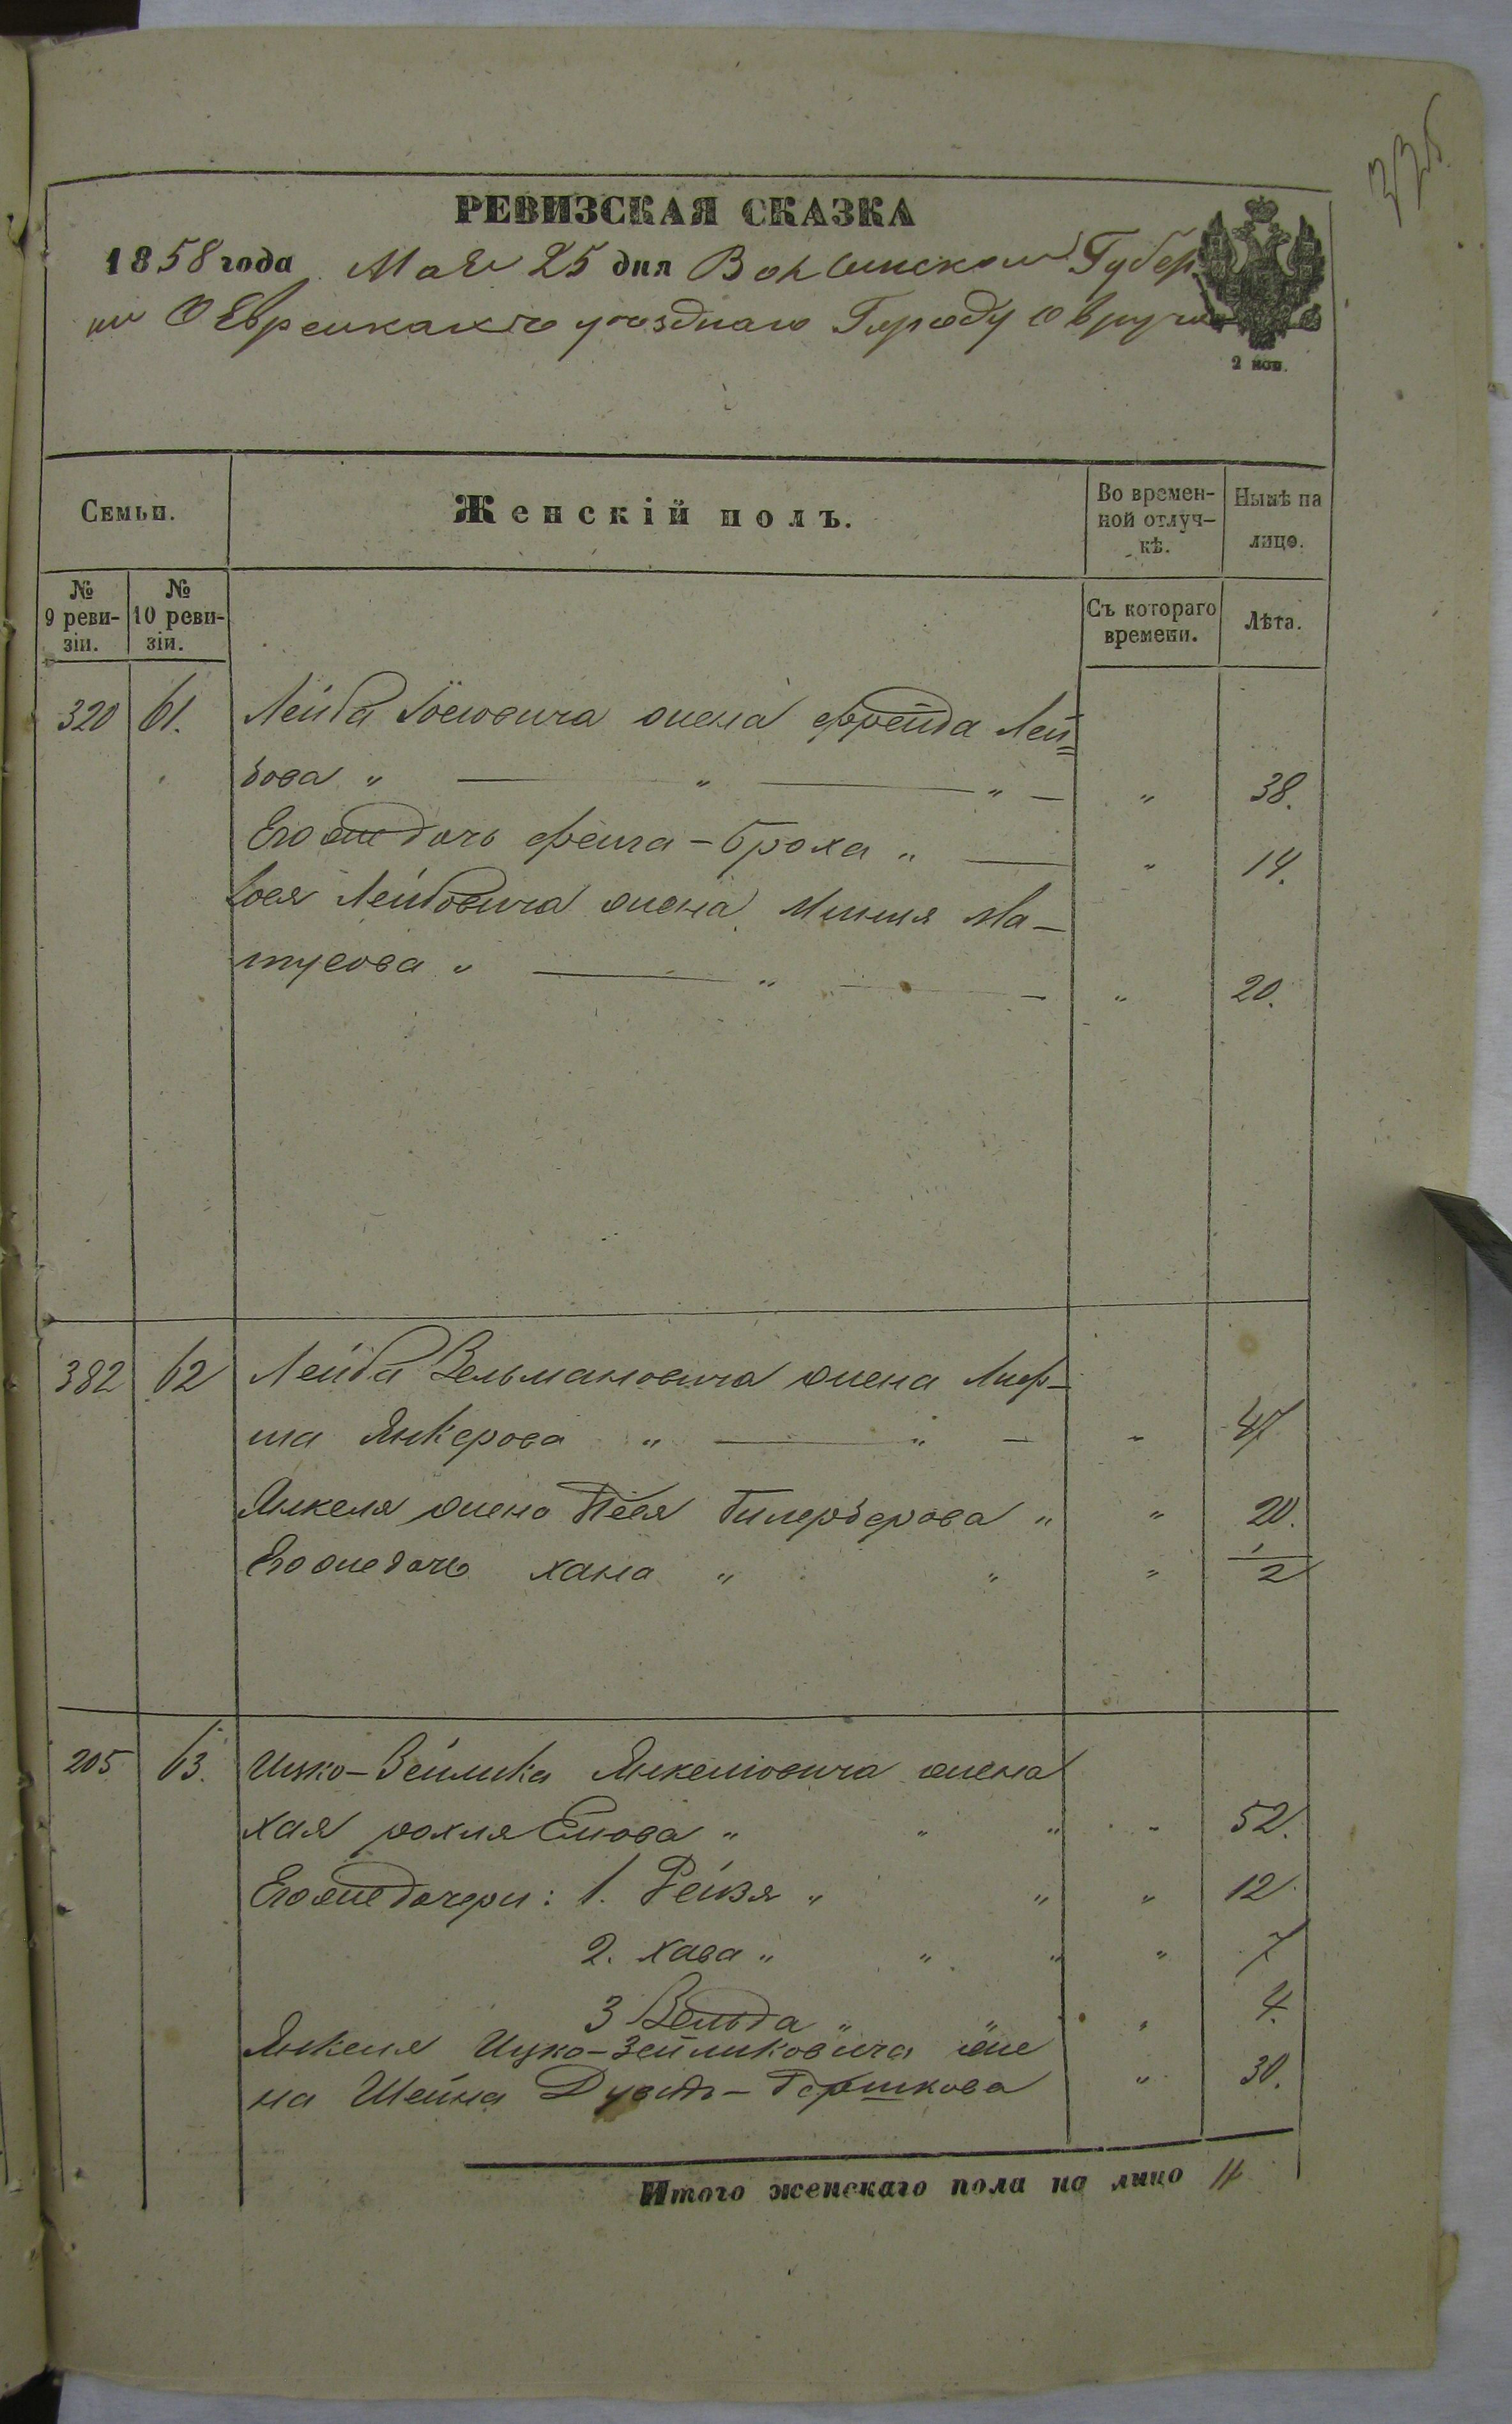 336.
РЕВИЗСКАЯ СКАЗКА
1858 года Мая 25 дня Волынской Губер.
нии О Евреикахъ уезднаго Городу Овруча
2 коп.
Семьи.
Женскій полъ.
Во времен-
ной отлуч-
кѣ.
Нынѣ на
лицо.
№
9 реви-
зіи.
№
10 реви-
зіи.
Съ котораго
времени.
Лѣта.
320 61. Лейба Іосіовича жена Фрейда Лей=
бова „ — „ — „ — „ 38.
Его же дочь Фейга-Броха „ — „ 14.
Іося Лейбовича жена Минля Ма-
тусова „ — „ — „ 20.
382 62 Лейба Зельмановича жена Лир-
ма Янкерова „ — „ — „ 47
Янкеля жена Песя Гилерберова „ „ 20.
Его же дочь Хана „ „ „ 1/2
205 63. Ицко-Зейлика Янкеліовича жена
Хая рохля Еліова „ „ „ „ 52.
Его же дочери: 1. Рейзя „ „ „ 12
2. Хава „ „ „ „ 7
3 Вельда „ „ „ 4.
Янкеля Ицко-Зейликовича же
на Шейна Дувидъ-Гершкова „ 30.
Итого женскаго пола на лицо 11